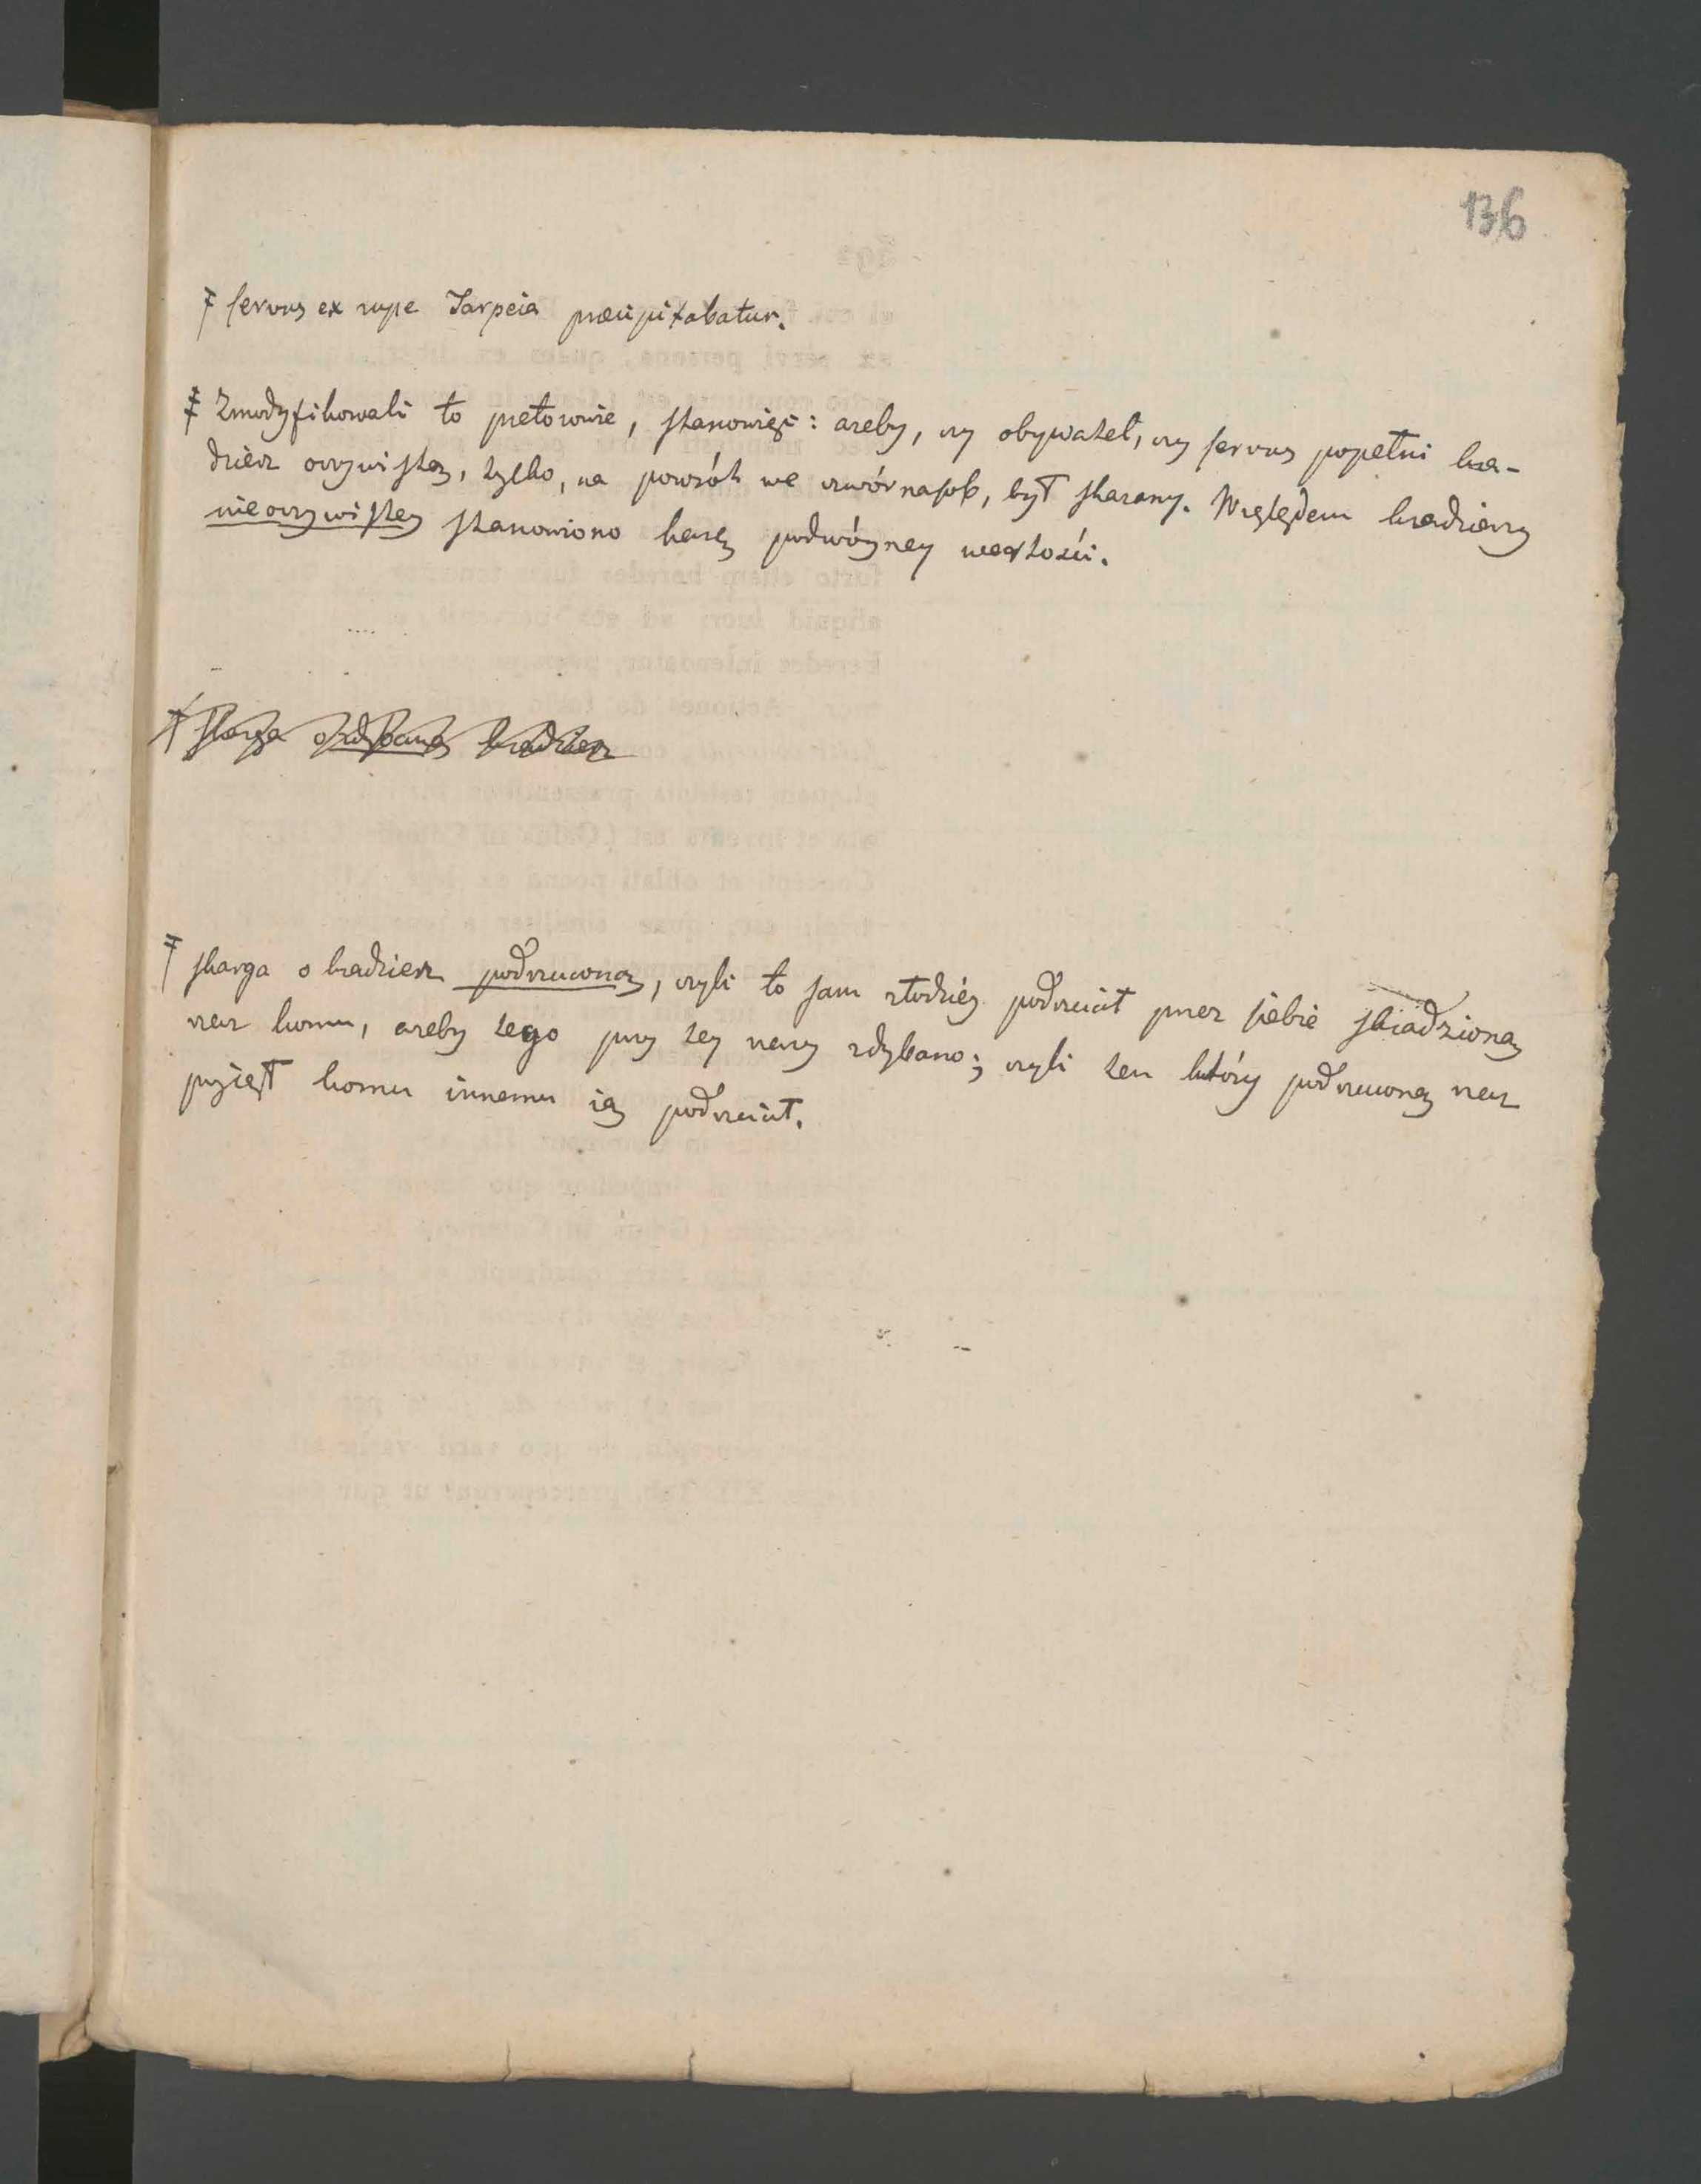 136
servus ex rupe Tarpeia præcipitabatur.
Zmodyfikowali to pretorowie, stanowiąc: ażeby, czy obywatel, czy servus popełni kra-
dzież oczywistą, tylko, na powrót we czwórnasób, był skarany. Względem kradzieży
nieoczywistey stanowiono karę podwóyney wartości.
skarga o zdybaną kradzież
skarga o kradzież podrzuconą, czyli to sam złodziéy podrzucił przez siebie skradzioną
rzecz komu, ażeby tego przy tey rzeczy zdybano; czyli ten który podrzuconą rzecz
przyiął komu innemu ią podrzucił.